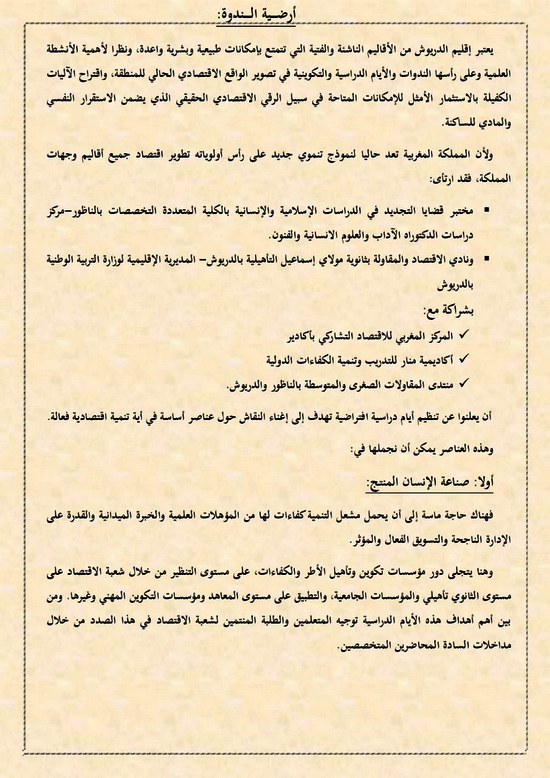 أرضـية الـندوة:
يعتبر إقليم الدريوش من الأقاليم الناشئة والفتية التي تتمتع بإمكانات طبيعية وبشرية واعدة، ونظرا لأهمية الأنشطة
العلمية وعلى رأسها الندوات والأيام الدراسية والتكوينية في تصوير الواقع الاقتصادي الحالي للمنطقة، واقتراح الآليات
الكفيلة بالاستثمار الأمثل للإمكانات المتاحة في سبيل الرقي الاقتصادي الحقيقي الذي يضمن الاستقرار النفسي
والمادي للساكنة.
ولأن المملكة المغربية تعد حاليا لنموذج تنموي جديد على رأس أولوياته تطوير اقتصاد جميع أقاليم وجهات
المملكة، فقد ارتأى:
▪ مختبر قضايا التجديد في الدراسات الإسلامية والإنسانية بالكلية المتعددة التخصصات بالناظور–مركز
دراسات الدكتوراه الآداب والعلوم الانسانية والفنون.
▪ ونادي الاقتصاد والمقاولة بثانوية مولاي إسماعيل التأهيلية بالدريوش– المديرية الإقليمية لوزارة التربية الوطنية
بالدريوش
بشراكة مع:
✓ المركز المغربي للاقتصاد التشاركي بأكادير
✓ أكاديمية منار للتدريب وتنمية الكفاءات الدولية
✓ منتدى المقاولات الصغرى والمتوسطة بالناظور والدريوش.
أن يعلنوا عن تنظيم أيام دراسية افتراضية تهدف إلى إغناء النقاش حول عناصر أساسة في أية تنمية اقتصادية فعالة.
وهذه العناصر يمكن أن نجملها في:
أولا: صناعة الإنسان المنتج:
فهناك حاجة ماسة إلى أن يحمل مشعل التنمية كفاءات لها من المؤهلات العلمية والخبرة الميدانية والقدرة على
الإدارة الناجحة والتسويق الفعال والمؤثر.
وهنا يتجلى دور مؤسسات تكوين وتأهيل الأطر والكفاءات، على مستوى التنظير من خلال شعبة الاقتصاد على
مستوى الثانوي تأهيلي والمؤسسات الجامعية، والتطبيق على مستوى المعاهد ومؤسسات التكوين المهني وغيرها. ومن
بين أهم أهداف هذه الأيام الدراسية توجيه المتعلمين والطلبة المنتمين لشعبة الاقتصاد في هذا الصدد من خلال
مداخلات السادة المحاضرين المتخصصين.